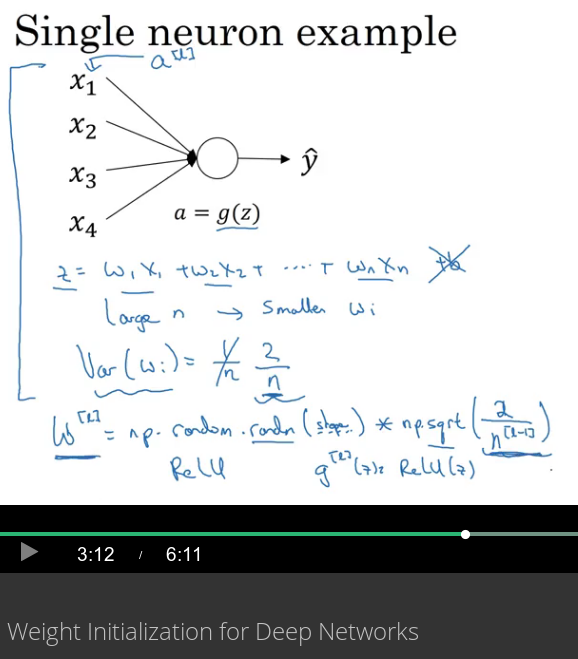 Single neuron example
a[l]
x1
x2
x3
x4
ŷ
a = g(z)
z = w1x1 + w2x2 + .... + wnxn +b
Large n → Smaller wi
Var(wi) = 1/n 2/n
W[l] = np.random.randn(shape) * np.sqrt(2/n[l-1])
ReLU g[l](z) = ReLU(z)
3:12 / 6:11
Weight Initialization for Deep Networks